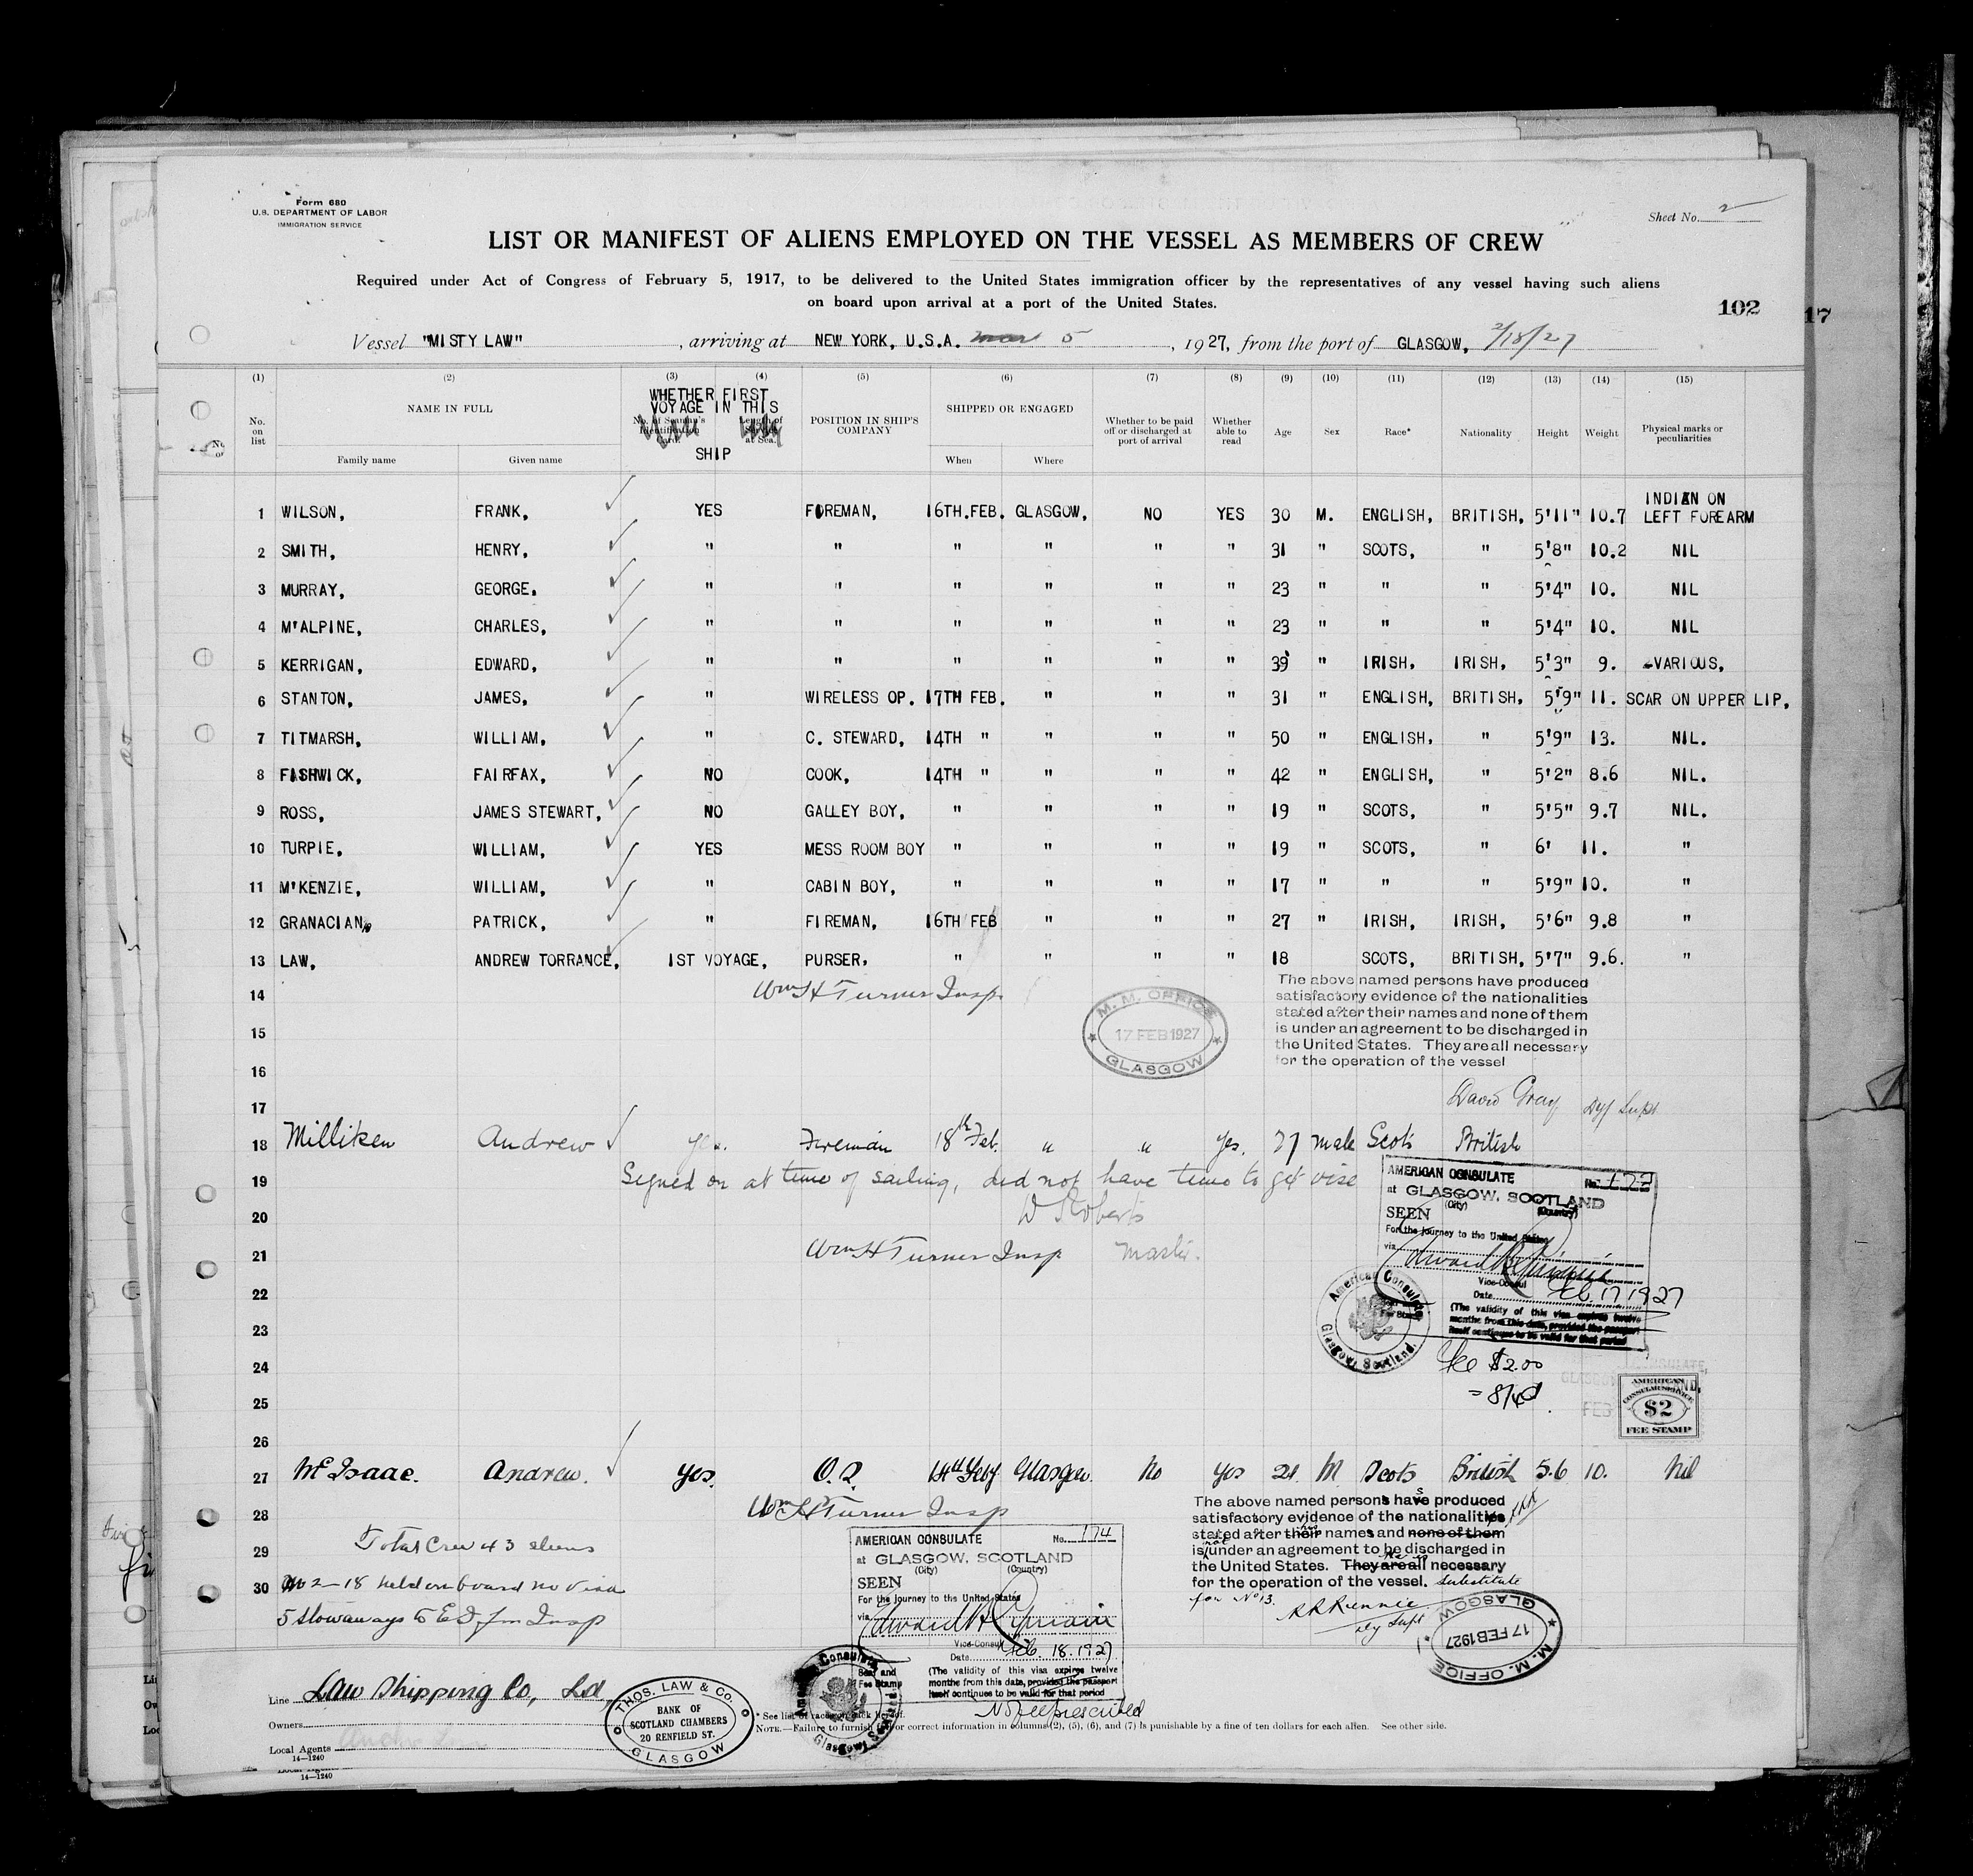 Form 680
U.S. DEPARTMENT OF LABOR
IMMIGRATION SERVICE
Sheet No. 2
LIST OR MANIFEST OF ALIENS EMPLOYED ON THE VESSEL AS MEMBERS OF CREW
Required under Act of Congress of February 5, 1917, to be delivered to the United States immigration officer by the representatives of any vessel having such aliens
on board upon arrival at a port of the United States.
102
17
Vessel "MISTY LAW", arriving at NEW YORK, U.S.A. Mar 5, 1927, from the port of GLASGOW, 2/18/27
(1) (2) (3) (4) (5) (6) (7) (8) (9) (10) (11) (12) (13) (14) (15)
No. on list
NAME IN FULL
Family name Given name
WHETHER FIRST
VOYAGE IN THIS
SHIP
POSITION IN SHIP'S COMPANY
SHIPPED OR ENGAGED
When Where
Whether to be paid off or discharged at port of arrival
Whether able to read
Age Sex Race* Nationality Height Weight
Physical marks or peculiarities
1 WILSON, FRANK, YES FOREMAN, 16TH.FEB. GLASGOW, NO YES 30 M. ENGLISH, BRITISH, 5'11" 10.7 INDIAN ON LEFT FOREARM
2 SMITH, HENRY, " " " " " " 31 " SCOTS, " 5'8" 10.2 NIL
3 MURRAY, GEORGE, " " " " " " 23 " " " 5'4" 10. NIL
4 M'ALPINE, CHARLES, " " " " " " 23 " " " 5'4" 10. NIL
5 KERRIGAN, EDWARD, " " " " " " 39 " IRISH, IRISH, 5'3" 9. VARIOUS,
6 STANTON, JAMES, " WIRELESS OP. 17TH FEB. " " " 31 " ENGLISH, BRITISH, 5'9" 11. SCAR ON UPPER LIP,
7 TITMARSH, WILLIAM, " C. STEWARD, 14TH " " " " 50 " ENGLISH, " 5'9" 13. NIL.
8 FISHWICK, FAIRFAX, NO COOK, 14TH " " " " 42 " ENGLISH, " 5'2" 8.6 NIL.
9 ROSS, JAMES STEWART, NO GALLEY BOY, " " " " 19 " SCOTS, " 5'5" 9.7 NIL.
10 TURPIE, WILLIAM, YES MESS ROOM BOY " " " " 19 " SCOTS, " 6' 11. "
11 M'KENZIE, WILLIAM, " CABIN BOY, " " " " 17 " " " 5'9" 10. "
12 GRANACIAN, PATRICK, " FIREMAN, 16TH FEB " " " 27 " IRISH, IRISH, 5'6" 9.8 "
13 LAW, ANDREW TORRANCE, 1ST VOYAGE, PURSER, " " " " 18 SCOTS, BRITISH, 5'7" 9.6. "
14 Wm H Turner Insp.
The above named persons have produced
satisfactory evidence of the nationalities
stated after their names and none of them
is under an agreement to be discharged in
the United States. They are all necessary
for the operation of the vessel
M. M. OFFICE
17 FEB 1927
GLASGOW
15
16
17
David Gray Dy Supt
18 Milliken Andrew yes. Fireman 18th Feb. " " Yes, 27 male Scots British
19 Signed on at time of sailing, did not have time to get vise
20 W Roberts
21 Wm H Turner Insp Master.
AMERICAN CONSULATE
at GLASGOW, SCOTLAND
(City) (Country)
SEEN
For the journey to the United States
via
Vice-Consul
Date Feb 17 1927
(The validity of this visa expires twelve
months from this date, provided the passport
itself continues to be valid for that period
American Consulate
Glasgow, Scotland.
22
23
24
Fee $2.00
= 8/4d
25
AMERICAN
CONSULAR SERVICE
$2
FEE STAMP
26
27 McIsaac. Andrew. yes. O.S. 18th Feby Glasgow. No yes 21. M Scots British 5.6 10. Nil
28 Wm H Turner Insp
The above named persons has produced
satisfactory evidence of the nationalities
stated after their names and none of them
is not under an agreement to be discharged in
the United States. They are all necessary
for the operation of the vessel. Substitute
for No 13.
R R Rennie
Dy Supt
M. M. OFFICE
17 FEB 1927
GLASGOW
29 Total Crew 43 aliens
30 No 2-18 held on board no visa
5 stowaways to E I fm Insp
AMERICAN CONSULATE No. 174
at GLASGOW, SCOTLAND
(City) (Country)
SEEN
For the journey to the United States
via
Vice-Consul
Date Feb 18. 1927
Seal and
Fee Stamp
(The validity of this visa expires twelve
months from this date, provided the passport
itself continues to be valid for that period
No fee prescribed
American Consulate
Line Law Shipping Co, Ld,
Owners
Local Agents
14—1240
THOS. LAW & CO.
BANK OF
SCOTLAND CHAMBERS
20 RENFIELD ST.
GLASGOW
* See list of races on back hereof.
NOTE.—Failure to furnish full or correct information in columns (2), (5), (6), and (7) is punishable by a fine of ten dollars for each alien. See other side.
14—1240